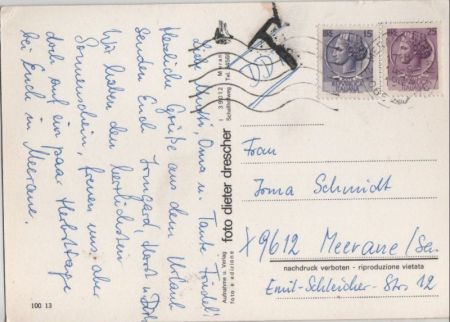 Liebe Mutti, Oma u. Tante Friedel!
Herzliche Grüße aus dem Urlaub
senden Euch Irmgard, Horst u.
Wir haben den herrlichsten
Sonnenschein, freuen uns aber
doch auf ein paar Herbsttage
bei Euch in Meerane.
100 13
Aufnahme u. Verlag
foto e edizione
foto dieter drescher
I 39012 Meran
Schallhofweg Tel.
T
15
25
Frau
Irma Schmidt
X 9612 Meerane/Sa.
nachdruck verboten - riproduzione vietata
Emil-Schleicher-Str 12